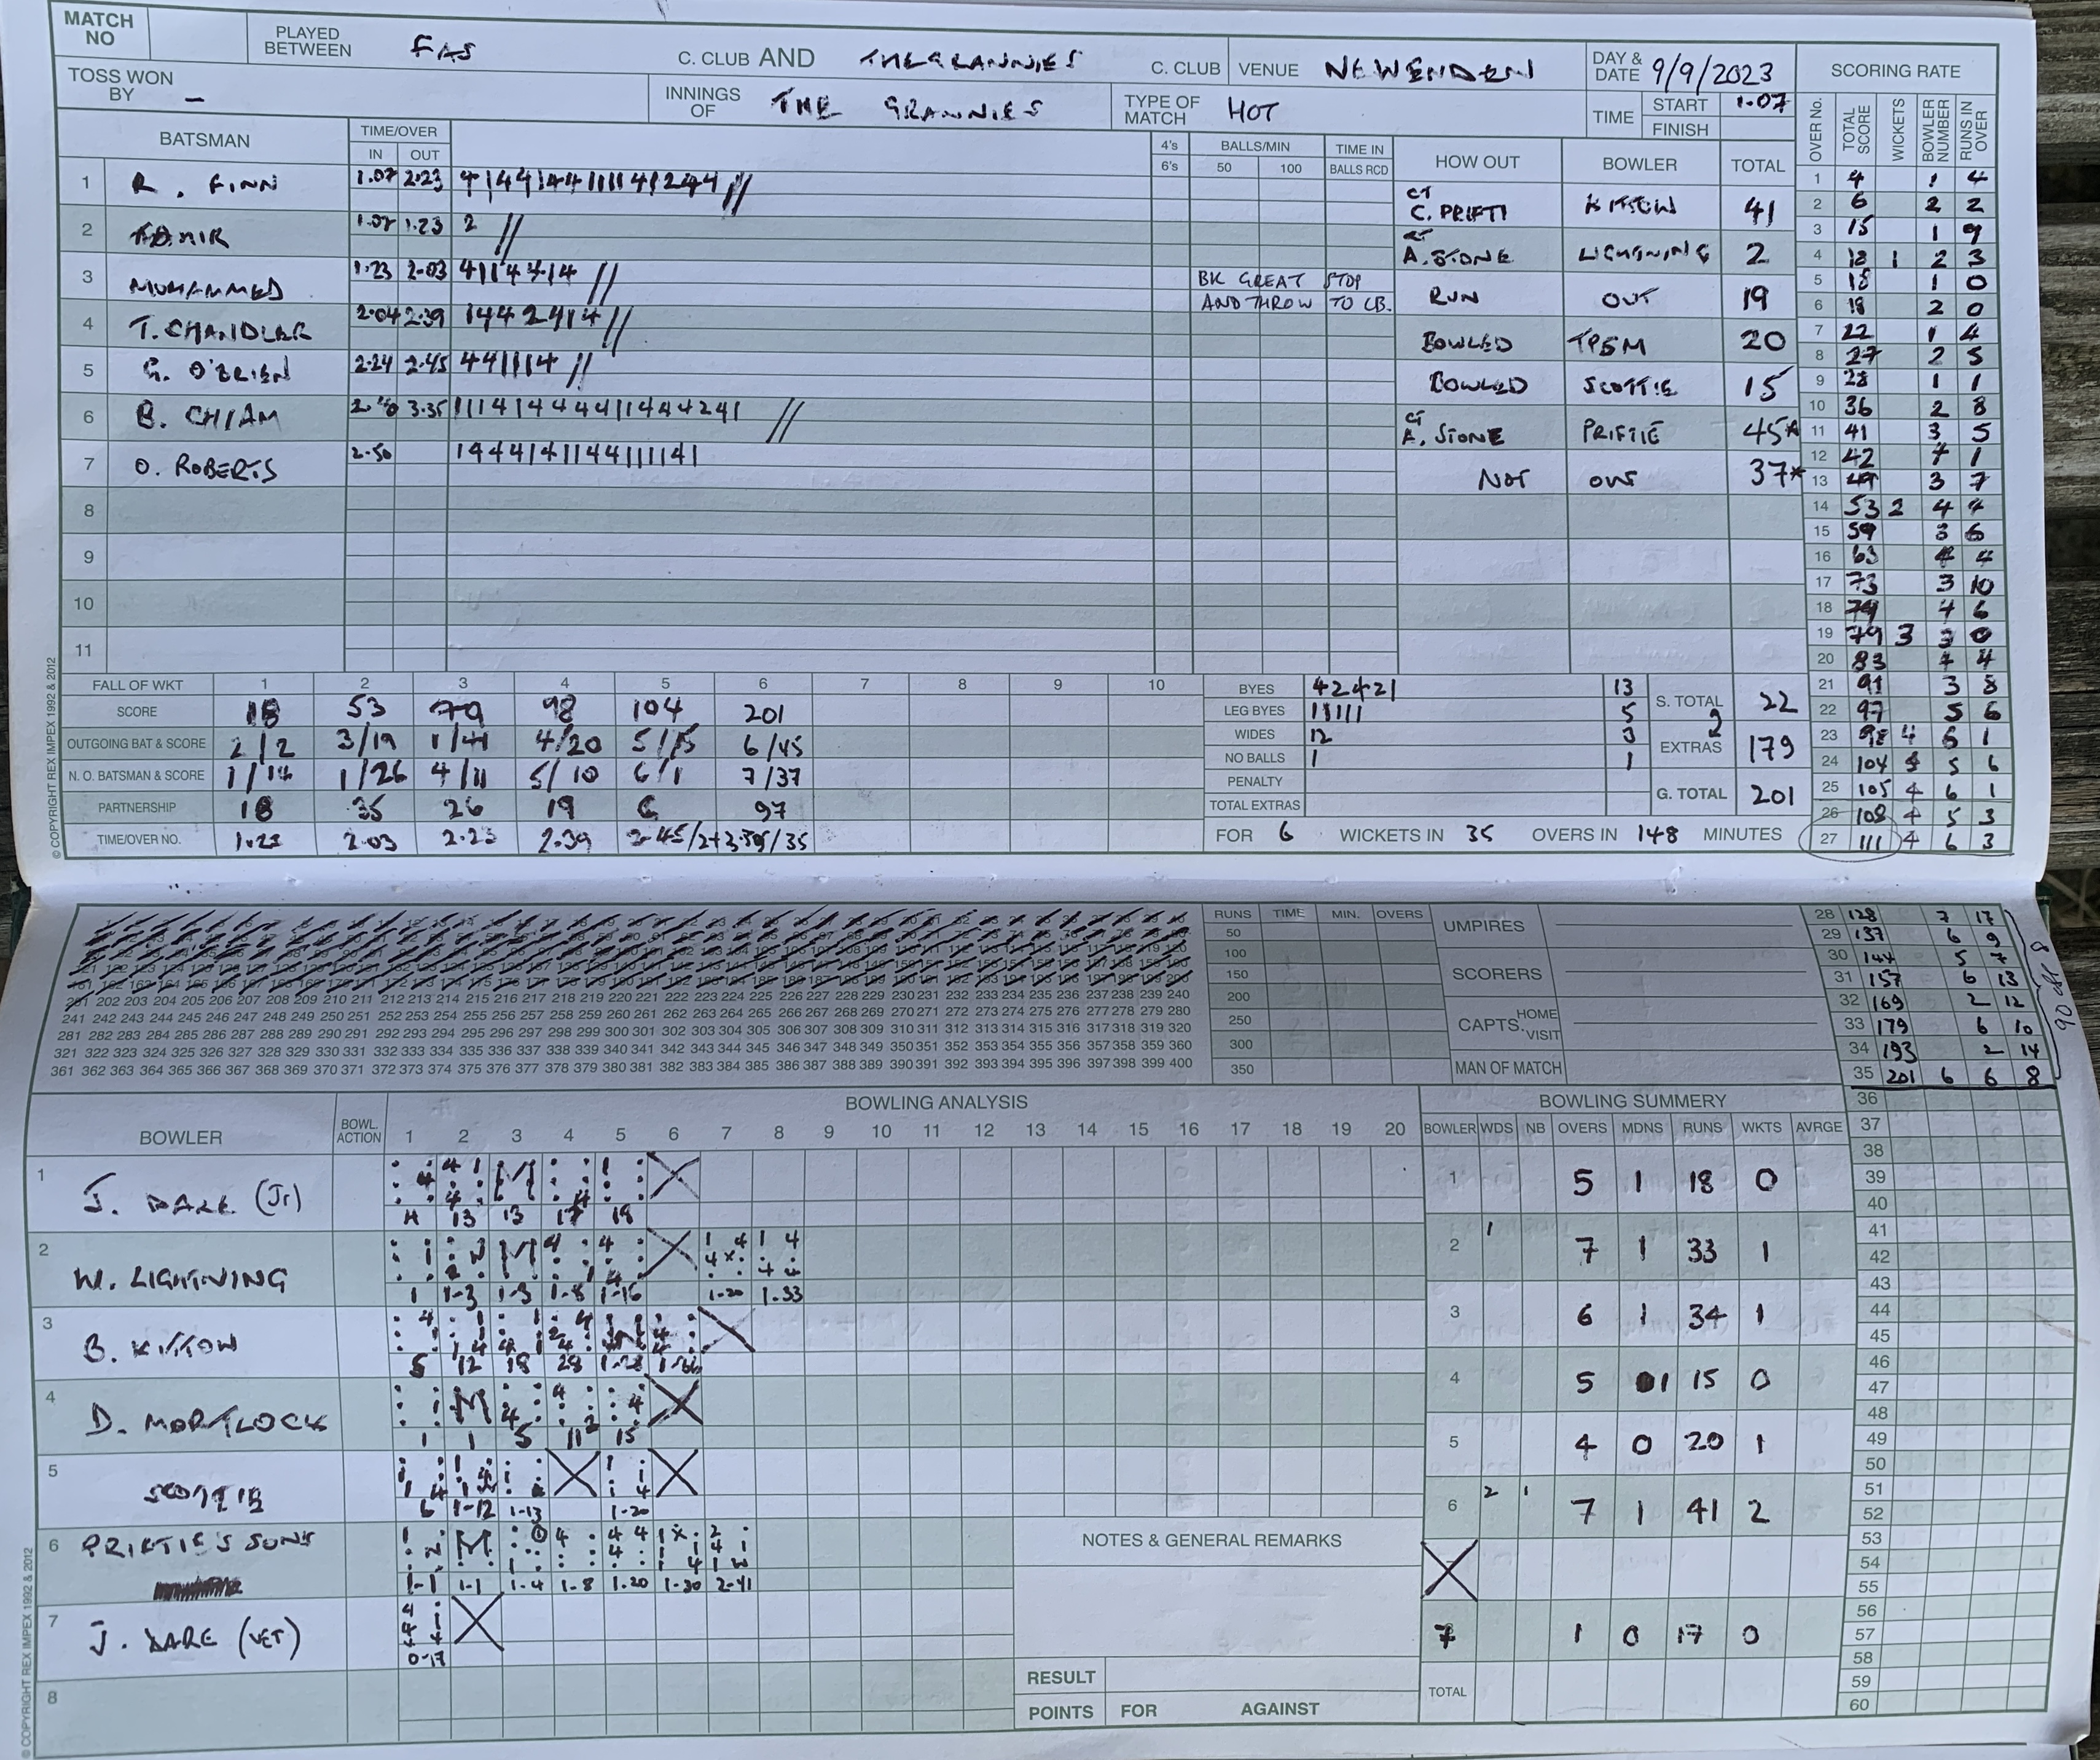 MATCH NO PLAYED BETWEEN FAS C. CLUB AND THE GRANNIES C. CLUB VENUE NEWENDEN DAY & DATE 9/9/2023 SCORING RATE
TOSS WON BY – INNINGS OF THE GRANNIES TYPE OF MATCH HOT TIME START 1.07 FINISH
BATSMAN TIME/OVER IN OUT 4's 6's BALLS/MIN 50 100 TIME IN BALLS RCD HOW OUT BOWLER TOTAL OVER No. TOTAL SCORE WICKETS BOWLER NUMBER RUNS IN OVER
1 R. FINN 1.07 2.23 CT C. PRIFTI KITTOW 41
2 TAMIR 1.07 1.23 2 CT A. STONE LIGHTNING 2
3 MUHAMMED 1.23 2.03 4114 4 4 1 4 BK GREAT STOP AND THROW TO CB. RUN OUT 19
4 T. CHANDLER 2.04 2.39 1442414 BOWLED TPSM 20
5 G. O'BRIEN 2.24 2.45 4411114 BOWLED SCOTTIE 15
6 B. CHIAM 2.40 3.35 CT A. STONE PRIFTIE 45*
7 O. ROBERTS 2.50 NOT OUT 37*
8
9
10
11
1 4 1 4
2 6 2 2
3 15 1 9
4 18 1 2 3
5 18 1 0
6 18 2 0
7 22 1 4
8 27 2 5
9 28 1 1
10 36 2 8
11 41 3 5
12 42 4 1
13 49 3 7
14 53 2 4 4
15 59 3 6
16 63 4 4
17 73 3 10
18 79 4 6
19 79 3 3 0
20 83 4 4
21 91 3 8
22 97 5 6
23 98 4 6 1
24 104 5 6
25 105 4 6 1
26 108 4 5 3
27 111 4 6 3
FALL OF WKT 1 2 3 4 5 6 7 8 9 10
SCORE 18 53 79 98 104 201
OUTGOING BAT & SCORE 2/2 3/19 1/41 4/20 5/15 6/45
N. O. BATSMAN & SCORE 1/14 1/26 4/11 5/10 6/1 7/37
PARTNERSHIP 18 35 26 19 6 97
TIME/OVER NO. 1.23 2.03 2.23 2.39 2.45/24 3.35/35
BYES 42421 13
LEG BYES 11111 5
WIDES 12 3
NO BALLS 1 1
PENALTY
TOTAL EXTRAS
S. TOTAL 22
EXTRAS 179
G. TOTAL 201
FOR 6 WICKETS IN 35 OVERS IN 148 MINUTES
© COPYRIGHT REX IMPEX 1992 & 2012
201 202 203 204 205 206 207 208 209 210 211 212 213 214 215 216 217 218 219 220 221 222 223 224 225 226 227 228 229 230 231 232 233 234 235 236 237 238 239 240
241 242 243 244 245 246 247 248 249 250 251 252 253 254 255 256 257 258 259 260 261 262 263 264 265 266 267 268 269 270 271 272 273 274 275 276 277 278 279 280
281 282 283 284 285 286 287 288 289 290 291 292 293 294 295 296 297 298 299 300 301 302 303 304 305 306 307 308 309 310 311 312 313 314 315 316 317 318 319 320
321 322 323 324 325 326 327 328 329 330 331 332 333 334 335 336 337 338 339 340 341 342 343 344 345 346 347 348 349 350 351 352 353 354 355 356 357 358 359 360
361 362 363 364 365 366 367 368 369 370 371 372 373 374 375 376 377 378 379 380 381 382 383 384 385 386 387 388 389 390 391 392 393 394 395 396 397 398 399 400
RUNS TIME MIN. OVERS
50
100
150
200
250
300
350
UMPIRES
SCORERS
CAPTS. HOME VISIT
MAN OF MATCH
28 128 7 17
29 137 6 9
30 144 5 7
31 157 6 13
32 169 2 12
33 179 6 10
34 193 2 14
35 201 6 6 8
90 off 8
BOWLER BOWL. ACTION BOWLING ANALYSIS
1 2 3 4 5 6 7 8 9 10 11 12 13 14 15 16 17 18 19 20
1 J. DARE (Jr) 4 13 13 17 18
2 W. LIGHTNING 1 1-3 1-3 1-8 1-16 1-20 1-33
3 B. KITTOW 5 12 18 28 1-28
4 D. MORTLOCK 1 1 5 11 15
5 SCOTTIE 6 1-12 1-13 1-20
6 PRIFTIE'S SONS 1-1 1-1 1-4 1-8 1-20 1-30 2-41
7 J. DARE (VET) 0-17
8
BOWLING SUMMERY
BOWLER WDS NB OVERS MDNS RUNS WKTS AVRGE
1 5 1 18 0
2 1 7 1 33 1
3 6 1 34 1
4 5 1 15 0
5 4 0 20 1
6 2 1 7 1 41 2
7 1 0 17 0
TOTAL
NOTES & GENERAL REMARKS
RESULT
POINTS FOR AGAINST
36
37
38
39
40
41
42
43
44
45
46
47
48
49
50
51
52
53
54
55
56
57
58
59
60
© COPYRIGHT REX IMPEX 1992 & 2012